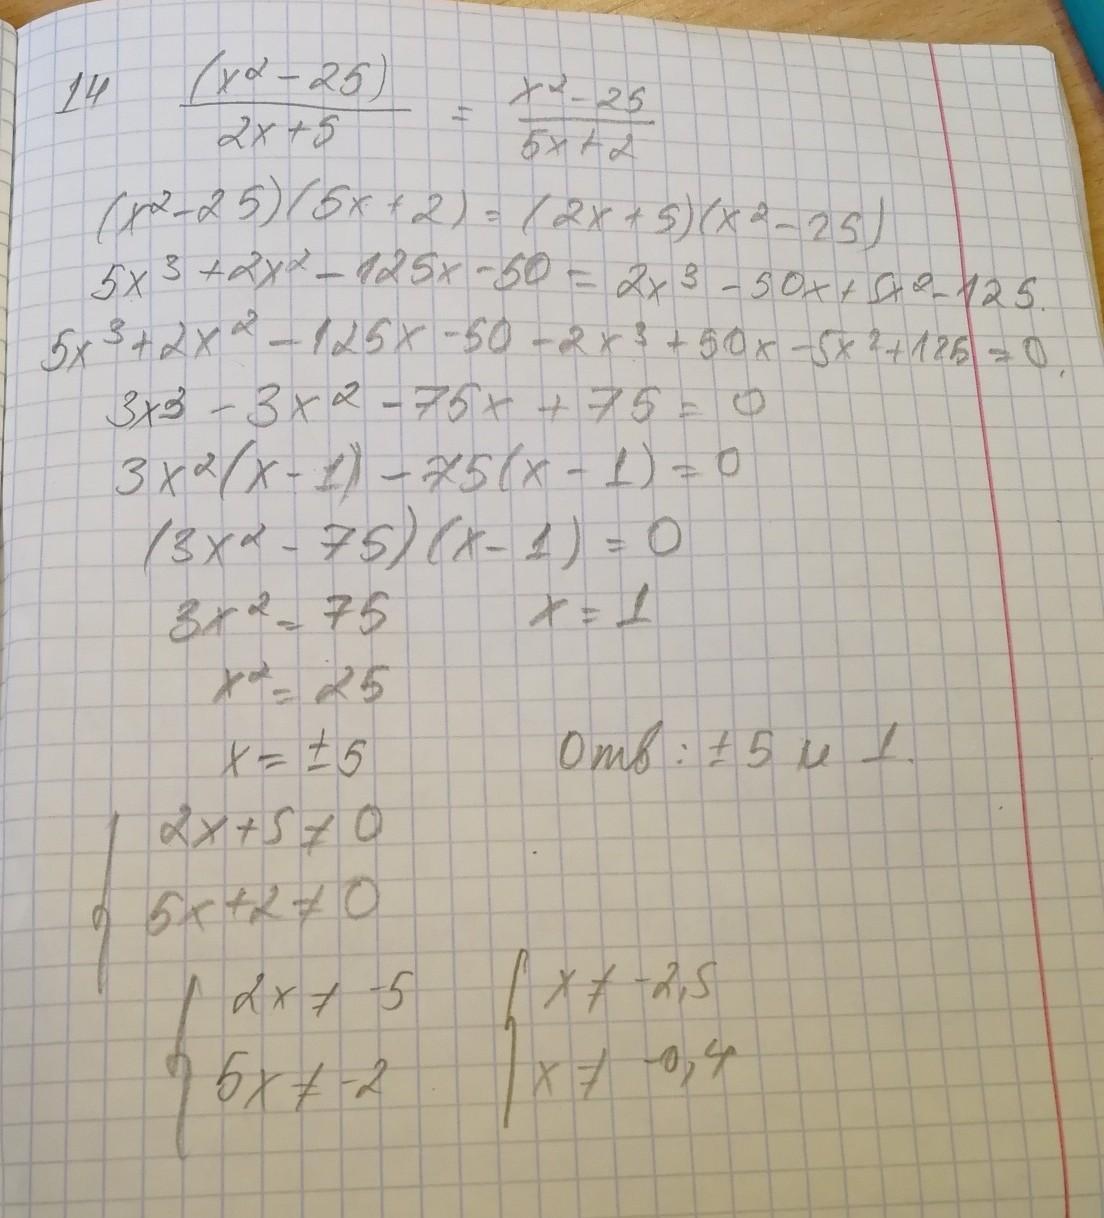 14 (x² - 25) / 2x + 5 = x² - 25 / 5x + 2
(x² - 25)(5x + 2) = (2x + 5)(x² - 25)
5x³ + 2x² - 125x - 50 = 2x³ - 50x + 5x² - 125.
5x³ + 2x² - 125x - 50 - 2x³ + 50x - 5x² + 125 = 0.
3x³ - 3x² - 75x + 75 = 0
3x²(x - 1) - 75(x - 1) = 0
(3x² - 75)(x - 1) = 0
3x² = 75 x = 1
x² = 25
x = ±5 Отв: ±5 и 1.
2x + 5 ≠ 0
5x + 2 ≠ 0
2x ≠ -5 x ≠ -2,5
5x ≠ -2 x ≠ -0,4